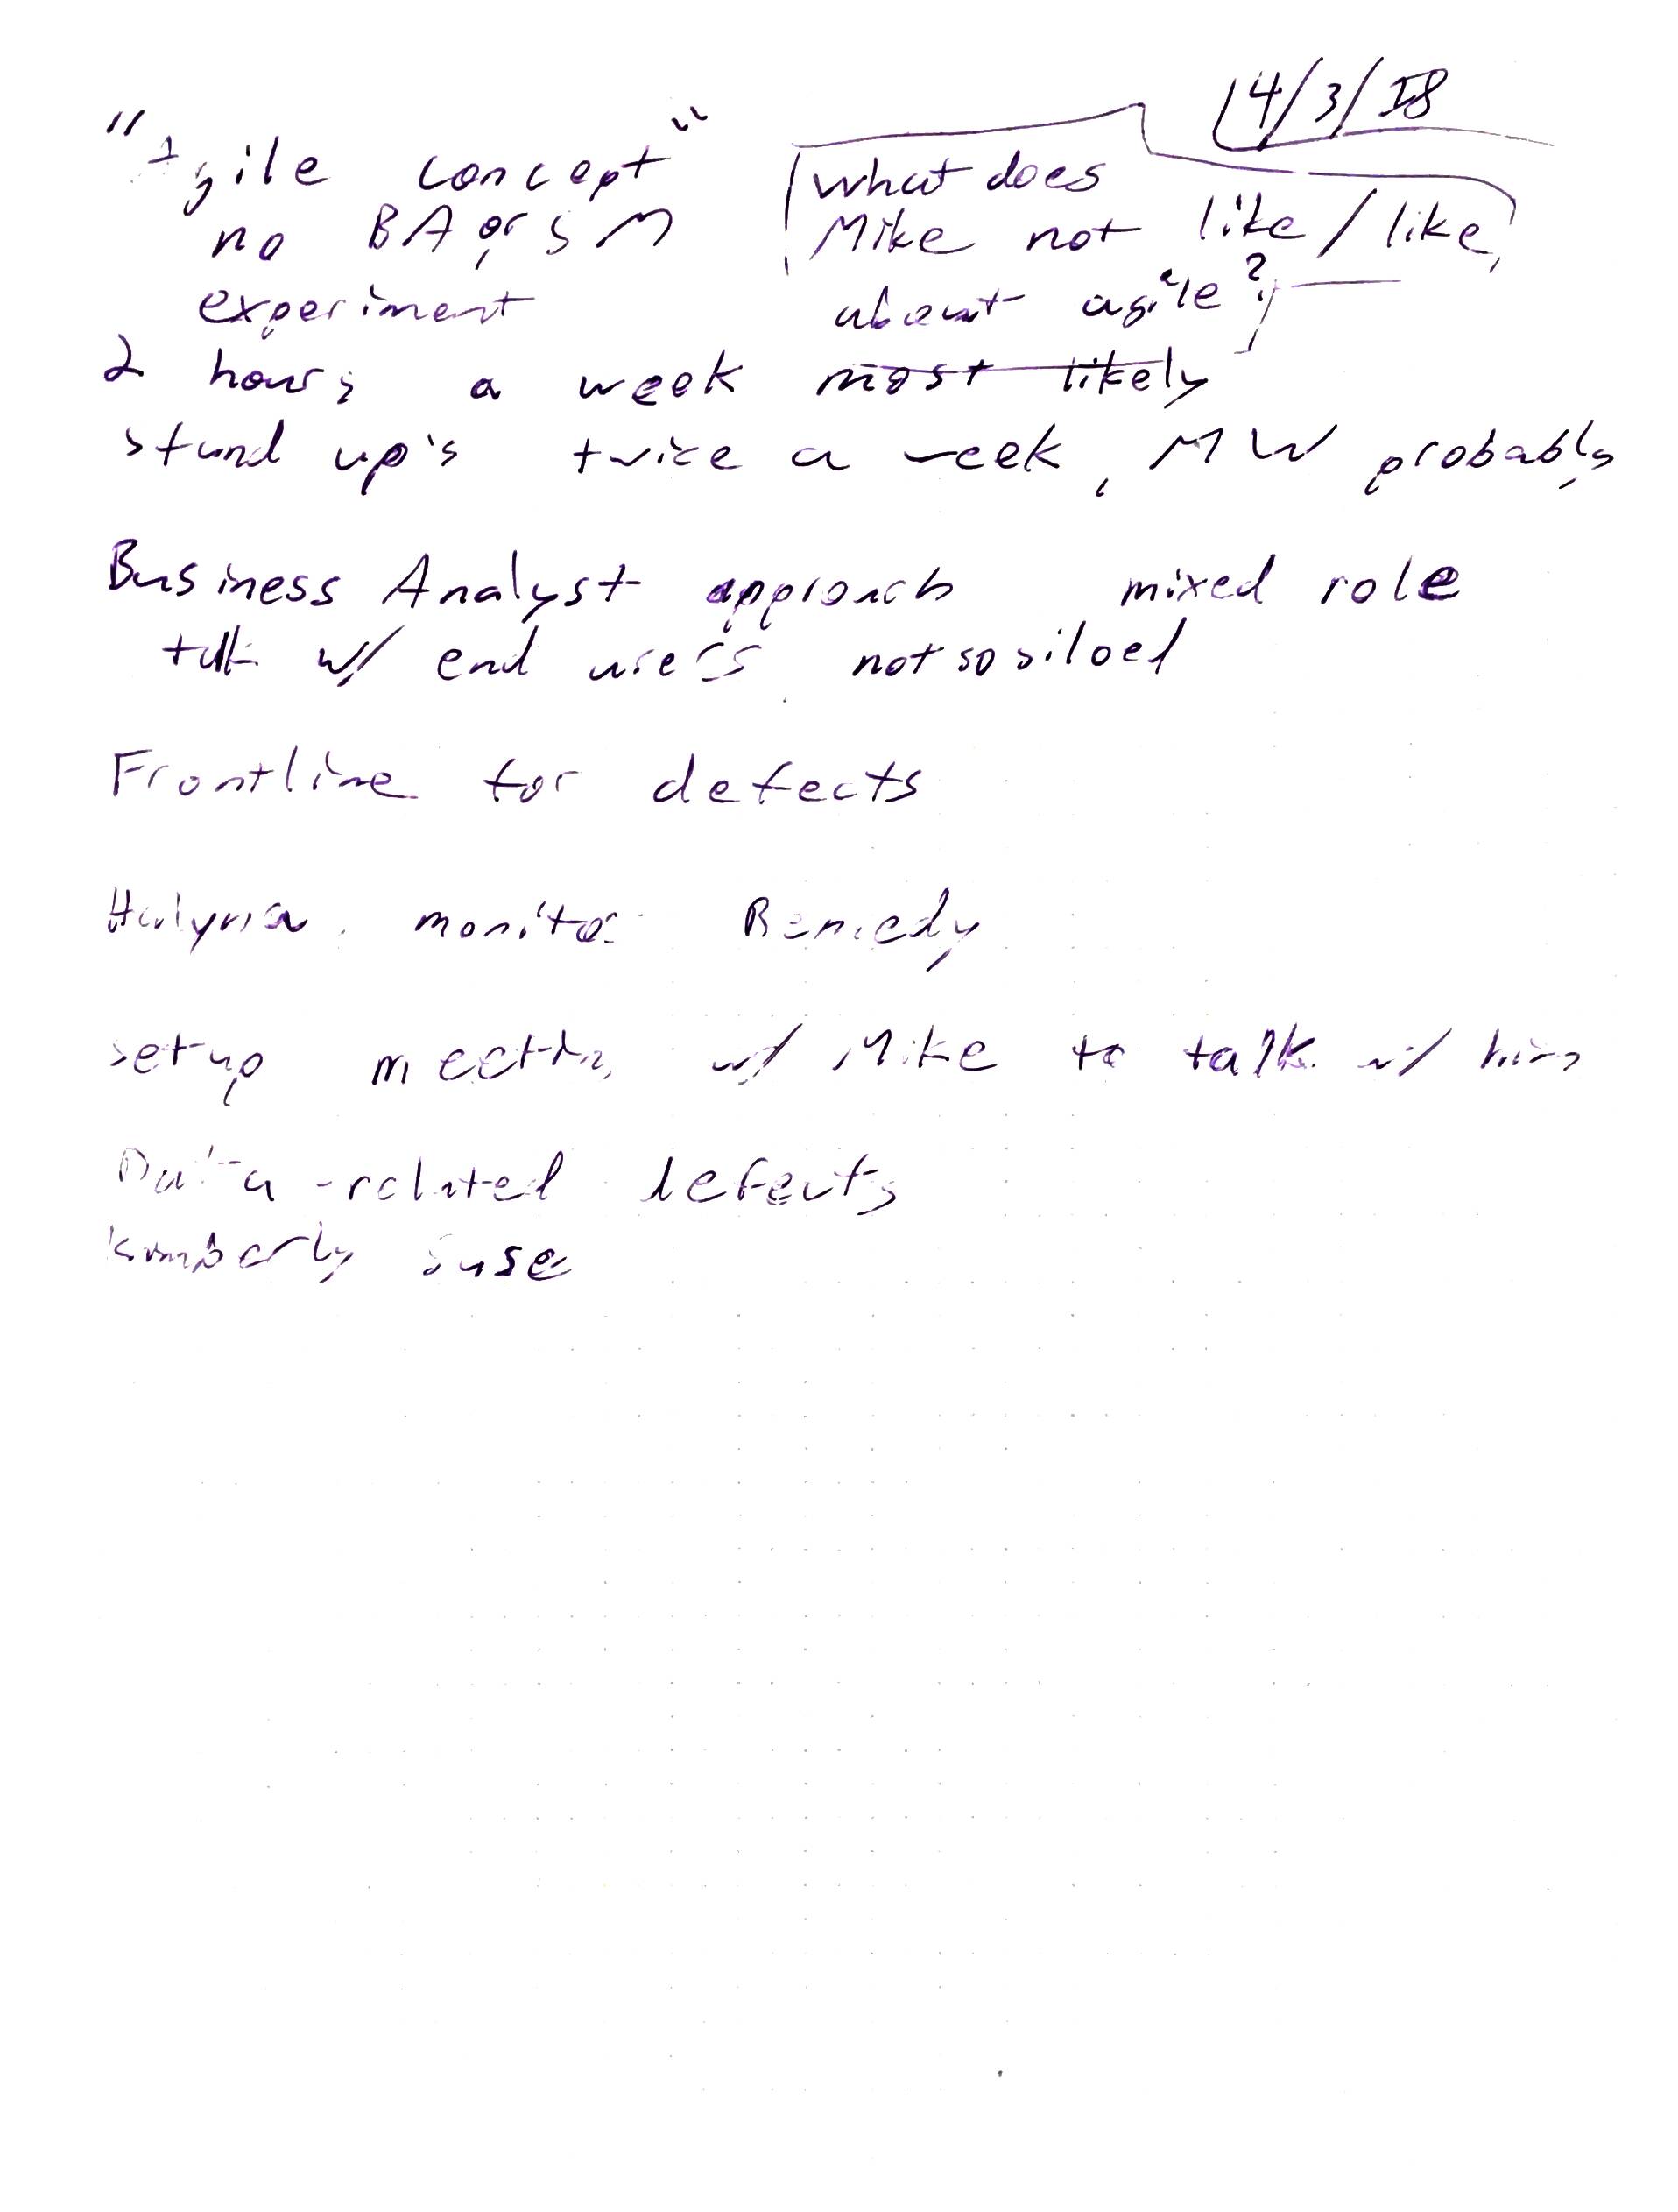 4/3/18
"Agile concept"
no BA or SM
experiment
What does
Mike not like / like
about agile?
2 hours a week most likely
stand up's twice a week, MW probably
Business Analyst approach mixed role
talk w/ end users not so siloed
Frontline for defects
Halyna monitor Remedy
setup meeting w/ Mike to talk w/ him
Data-related defects
Kimberly